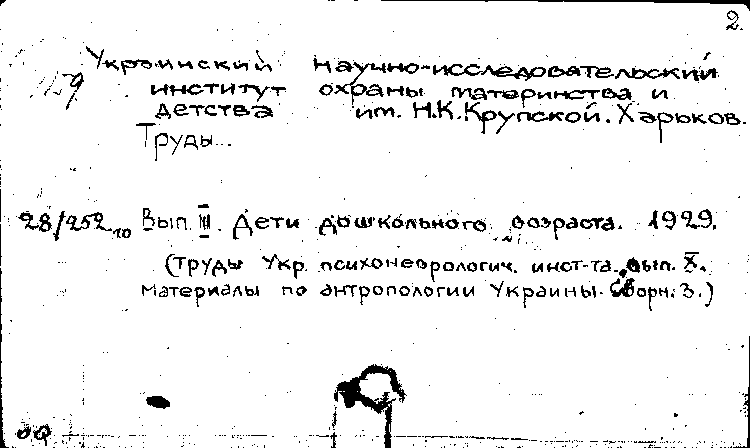 2.
Украинский научно-исследовательский
институт охраны материнства и
детства им. Н.К.Крупской. Харьков.
Труды...
28/252 10 Вып. III. Дети дошкольного возраста. 1929.
(Труды Укр. психоневрологич. инст-та. вып. X.
материалы по антропологии Украины. Сборн. 3.)